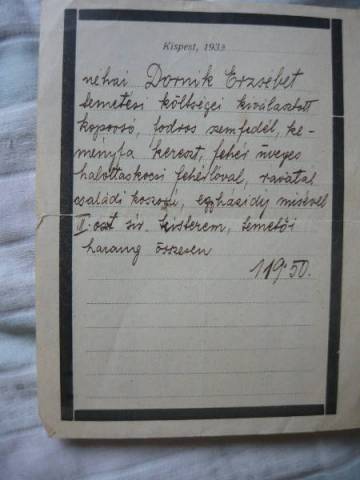 Kispest, 193
néhai Dornik Erzsébet
temetési költségei kiválasztott
koporsó, fodros szemfedél, ke-
ményfa kereszt, fehér üveges
halottaskocsi fehérlóval, ravatal
családi koszorú, egyházidíj misével
II. oszt sir. teisterem, temetői
harang összesen
119.50.